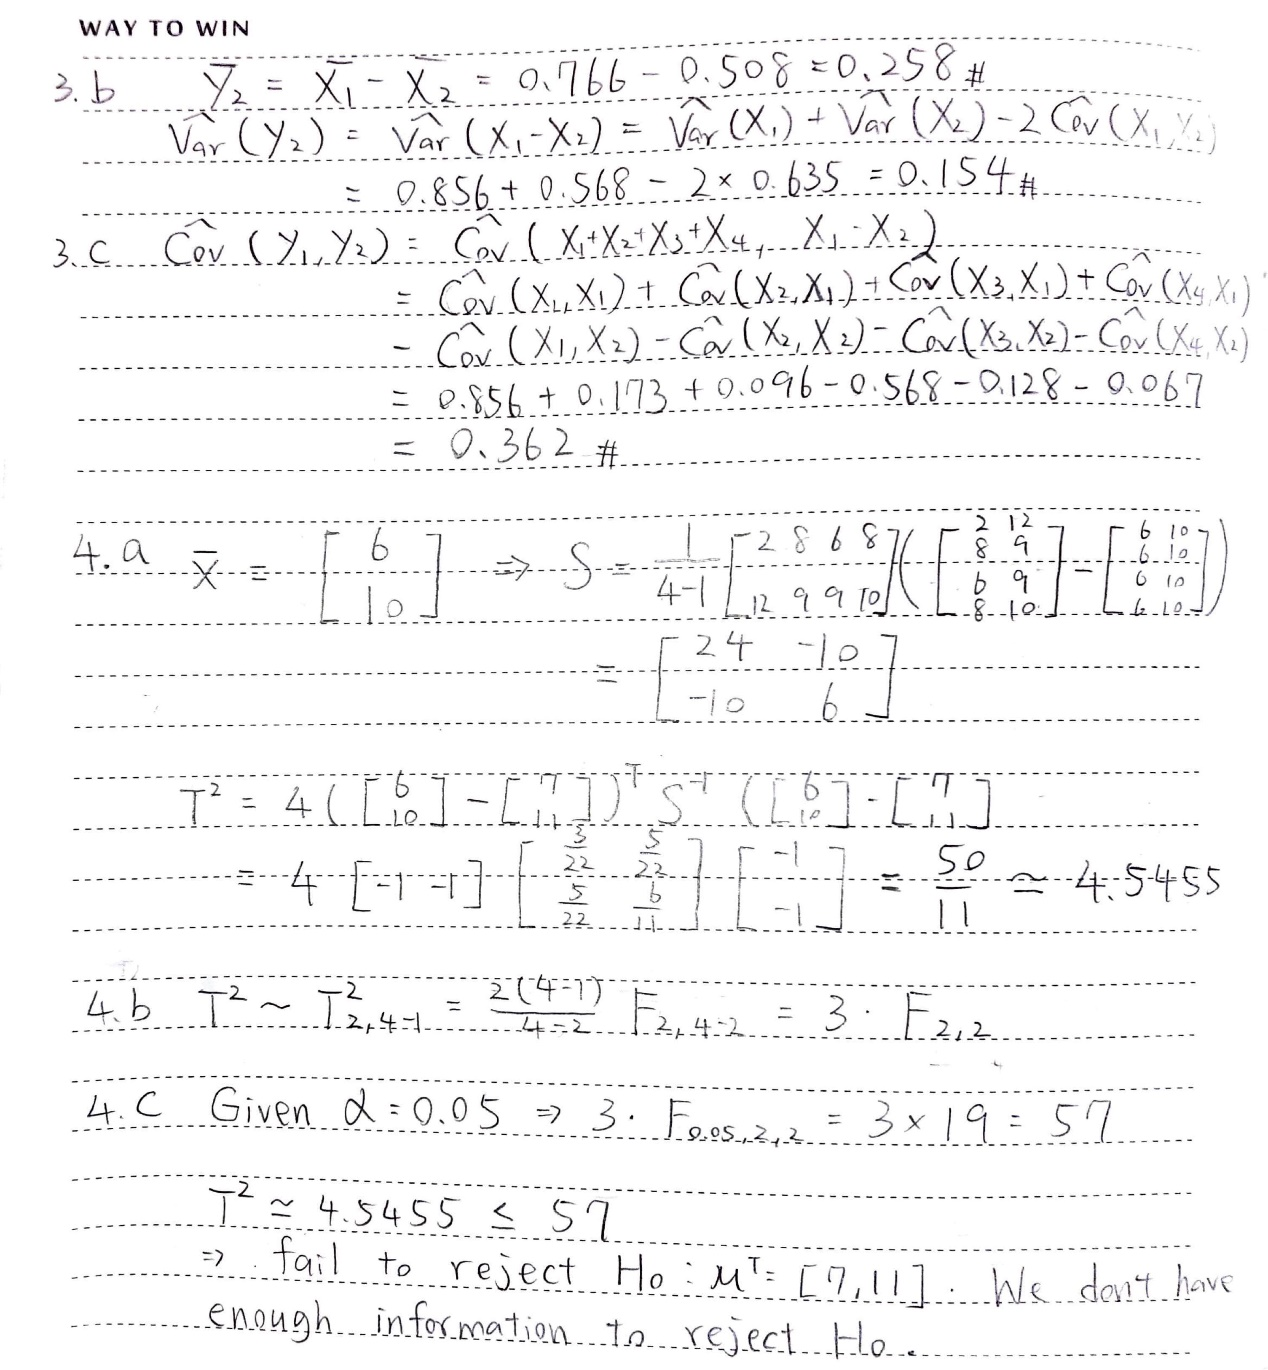 WAY TO WIN
3.b Ȳ₂ = X̄₁ - X̄₂ = 0.766 - 0.508 = 0.258 #
V̂ar (Y₂) = V̂ar (X₁-X₂) = V̂ar (X₁) + V̂ar (X₂) - 2 Ĉov (X₁, X₂)
= 0.856 + 0.568 - 2 × 0.635 = 0.154 #
3.C Ĉov (Y₁, Y₂) = Ĉov ( X₁+X₂+X₃+X₄, X₁-X₂ )
= Ĉov (X₁, X₁) + Ĉov (X₂, X₁) + Ĉov (X₃, X₁) + Ĉov (X₄, X₁)
- Ĉov (X₁, X₂) - Ĉov (X₂, X₂) - Ĉov (X₃, X₂) - Ĉov (X₄, X₂)
= 0.856 + 0.173 + 0.096 - 0.568 - 0.128 - 0.067
= 0.362 #
4.a X̄ = [6; 10] ⇒ S = 1/(4-1) [2 8 6 8; 12 9 9 10] ([2 12; 8 9; 6 9; 8 10] - [6 10; 6 10; 6 10; 6 10])
= [24 -10; -10 6]
T² = 4 ([6; 10] - [7; 11])ᵀ S⁻¹ ([6; 10] - [7; 11]
= 4 [-1 -1] [3/22 5/22; 5/22 6/11] [-1; -1] = 50/11 ≃ 4.5455
4.b T² ~ T²₂,₄₋₁ = 2(4-1)/(4-2) F₂,₄₋₂ = 3 · F₂,₂
4.C Given α = 0.05 ⇒ 3 · F₀.₀₅,₂,₂ = 3 × 19 = 57
T² ≃ 4.5455 ≤ 57
⇒ fail to reject Ho : μᵀ = [7, 11]. We don't have
enough information to reject Ho.